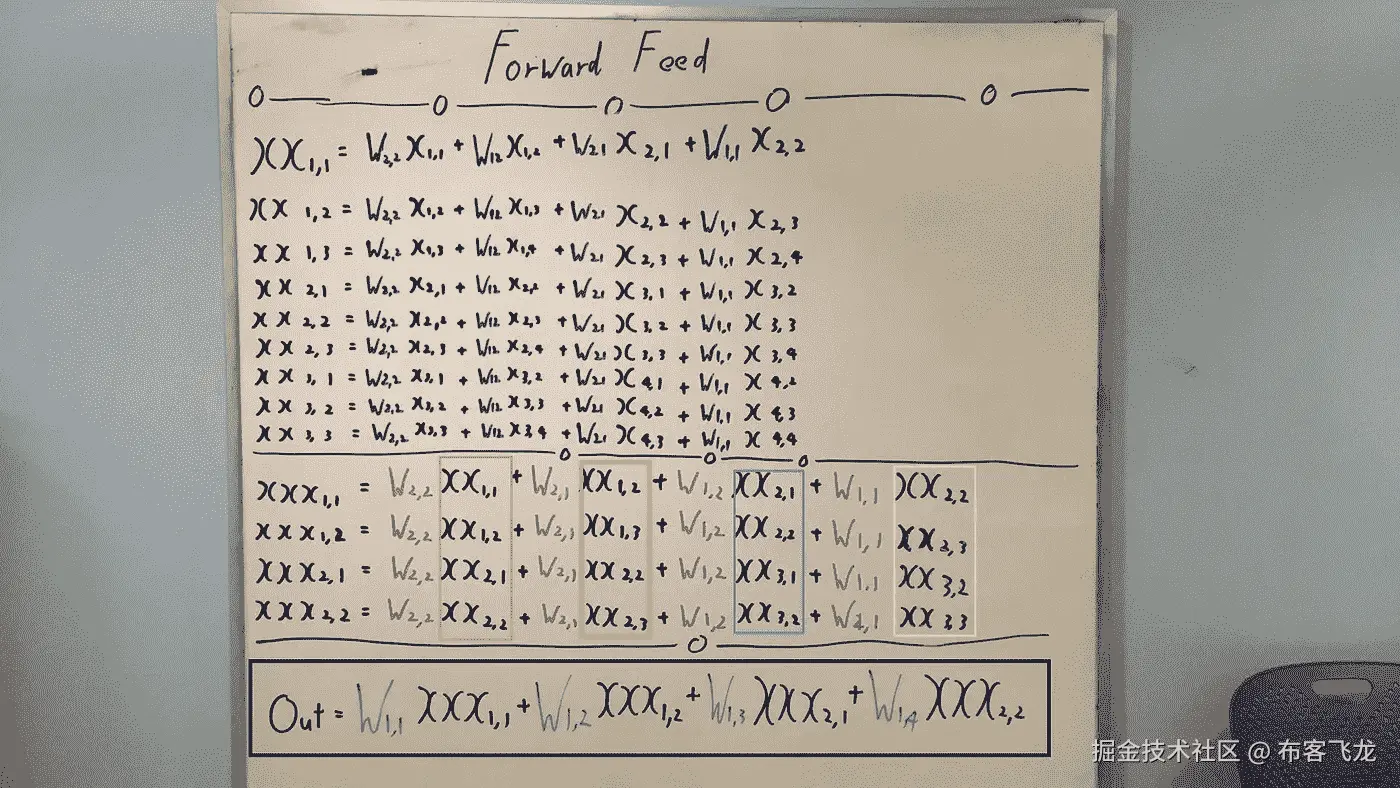 Forward Feed
XX1,1 = W2,2 X1,1 + W12 X1,2 + W21 X2,1 + W1,1 X2,2
XX1,2 = W2,2 X1,2 + W12 X1,3 + W21 X2,2 + W1,1 X2,3
XX1,3 = W2,2 X1,3 + W12 X1,4 + W21 X2,3 + W1,1 X2,4
XX2,1 = W2,2 X2,1 + W12 X2,2 + W21 X3,1 + W1,1 X3,2
XX2,2 = W2,2 X2,2 + W12 X2,3 + W21 X3,2 + W1,1 X3,3
XX2,3 = W2,2 X2,3 + W12 X2,4 + W21 X3,3 + W1,1 X3,4
XX3,1 = W2,2 X3,1 + W12 X3,2 + W21 X4,1 + W1,1 X4,2
XX3,2 = W2,2 X3,2 + W12 X3,3 + W21 X4,2 + W1,1 X4,3
XX3,3 = W2,2 X3,3 + W12 X3,4 + W21 X4,3 + W1,1 X4,4
XXX1,1 = W2,2 XX1,1 + W2,1 XX1,2 + W1,2 XX2,1 + W1,1 XX2,2
XXX1,2 = W2,2 XX1,2 + W2,1 XX1,3 + W1,2 XX2,2 + W1,1 XX2,3
XXX2,1 = W2,2 XX2,1 + W2,1 XX2,2 + W1,2 XX3,1 + W1,1 XX3,2
XXX2,2 = W2,2 XX2,2 + W2,1 XX2,3 + W1,2 XX3,2 + XX3,3
Out = W1,1 XXX1,1 + W1,2 XXX1,2 + W1,3 XXX2,1 + W1,4 XXX2,2
掘金技术社区 @ 布客飞龙